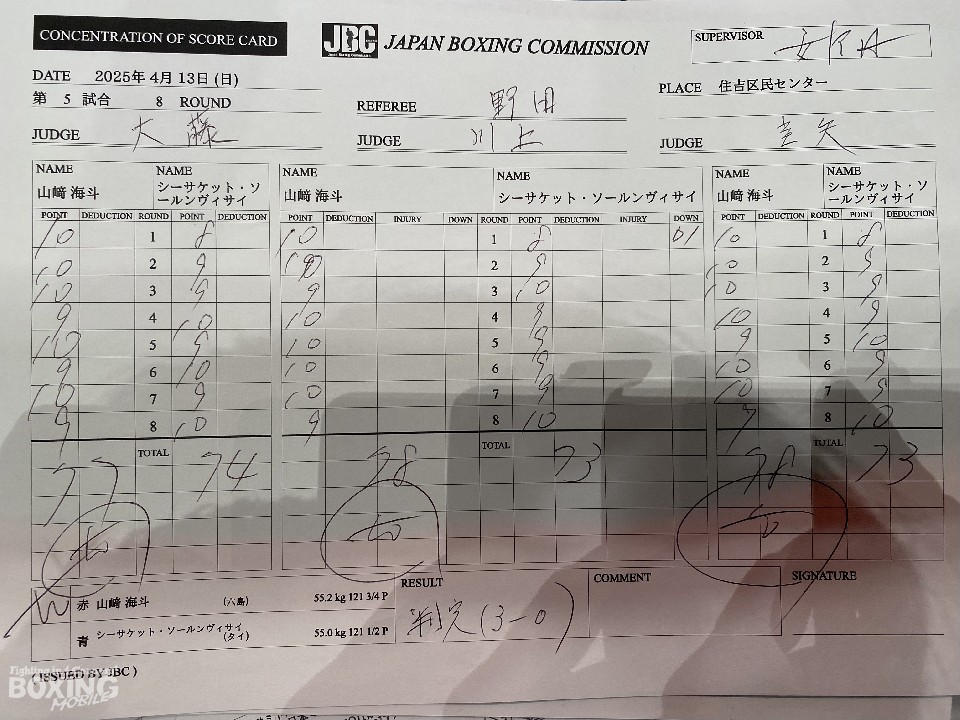 CONCENTRATION OF SCORE CARD
JBC JAPAN BOXING COMMISSION
SUPERVISOR
DATE 2025年 4月 13日 (日)
PLACE 住吉区民センター
第 5 試合 8 ROUND
REFEREE 野田
JUDGE 大藤
JUDGE 川上
JUDGE
NAME 山﨑 海斗 NAME シーサケット・ソールンヴィサイ
NAME 山﨑 海斗 NAME シーサケット・ソールンヴィサイ
NAME 山﨑 海斗 NAME シーサケット・ソールンヴィサイ
POINT DEDUCTION ROUND POINT DEDUCTION POINT DEDUCTION INJURY DOWN ROUND POINT DEDUCTION INJURY DOWN POINT DEDUCTION ROUND POINT DEDUCTION
10 1 8 10 1 8 01 10 1 8
10 2 9 10 2 9 10 2 9
10 3 9 9 3 10 10 3 9
9 4 10 10 4 9 10 4 9
10 5 9 10 5 9 9 5 10
9 6 10 10 6 9 10 6 9
10 7 9 10 7 9 10 7 9
9 8 10 9 8 10 9 8 10
77 TOTAL 74 78 TOTAL 73 78 TOTAL 73
W 赤 山﨑 海斗 (六島) 55.2 kg 121 3/4 P
青 シーサケット・ソールンヴィサイ (タイ) 55.0 kg 121 1/2 P
RESULT
判定 (3-0)
COMMENT
SIGNATURE
(ISSUED BY JBC)
BOXING
MOBILE